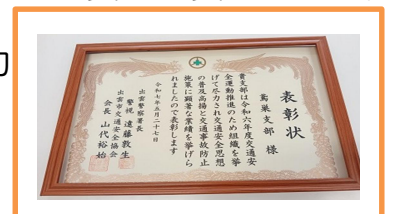 表彰状
鳶巣支部 様
貴支部は令和六年度交通安
全運動推進のため組織を挙
げて尽力され交通安全思想
の普及高揚と交通事故防止
施策に顕著な業績を挙げら
れましたので表彰します
令和七年五月二十七日
出雲警察署長
警視 遠藤敦生
出雲市交通安全協会
会長 山代裕始